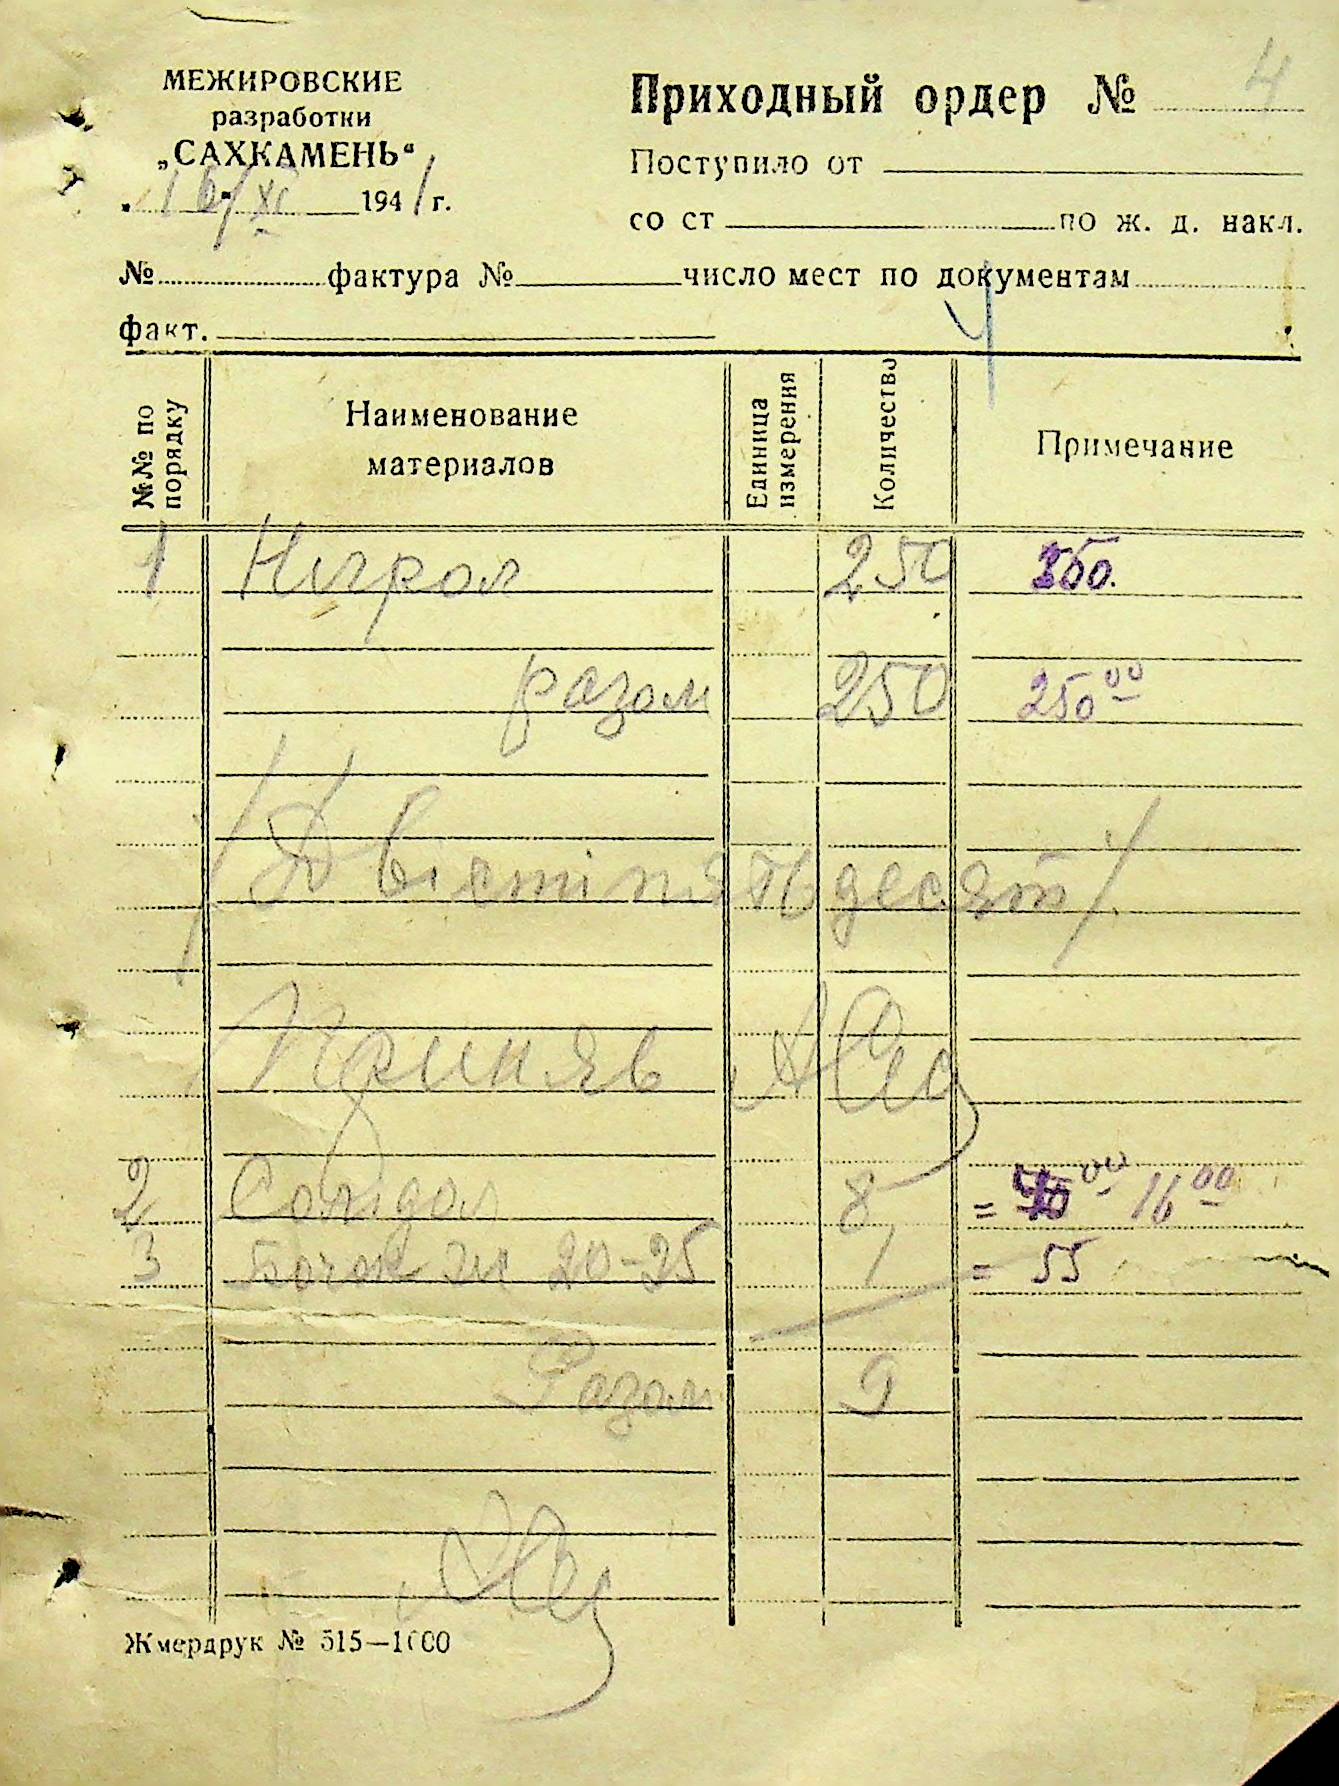 МЕЖИРОВСКИЕ
разработки
„САХКАМЕНЬ“
16/XI 1941 г.
Приходный ордер № 4
Поступило от
со ст по ж. д. накл.
№ фактура № число мест по документам
факт.
№№ по порядку Наименование материалов Единица измерения Количество Примечание
1 Нігрол 250 250.
разом 250 250 00
/Двісті пятьдесят/
Приняв
2 Солідол 8 = 16 00
3 Бочок 20-25 1 = 55
Разом 9
Жмердрук № 515—1000